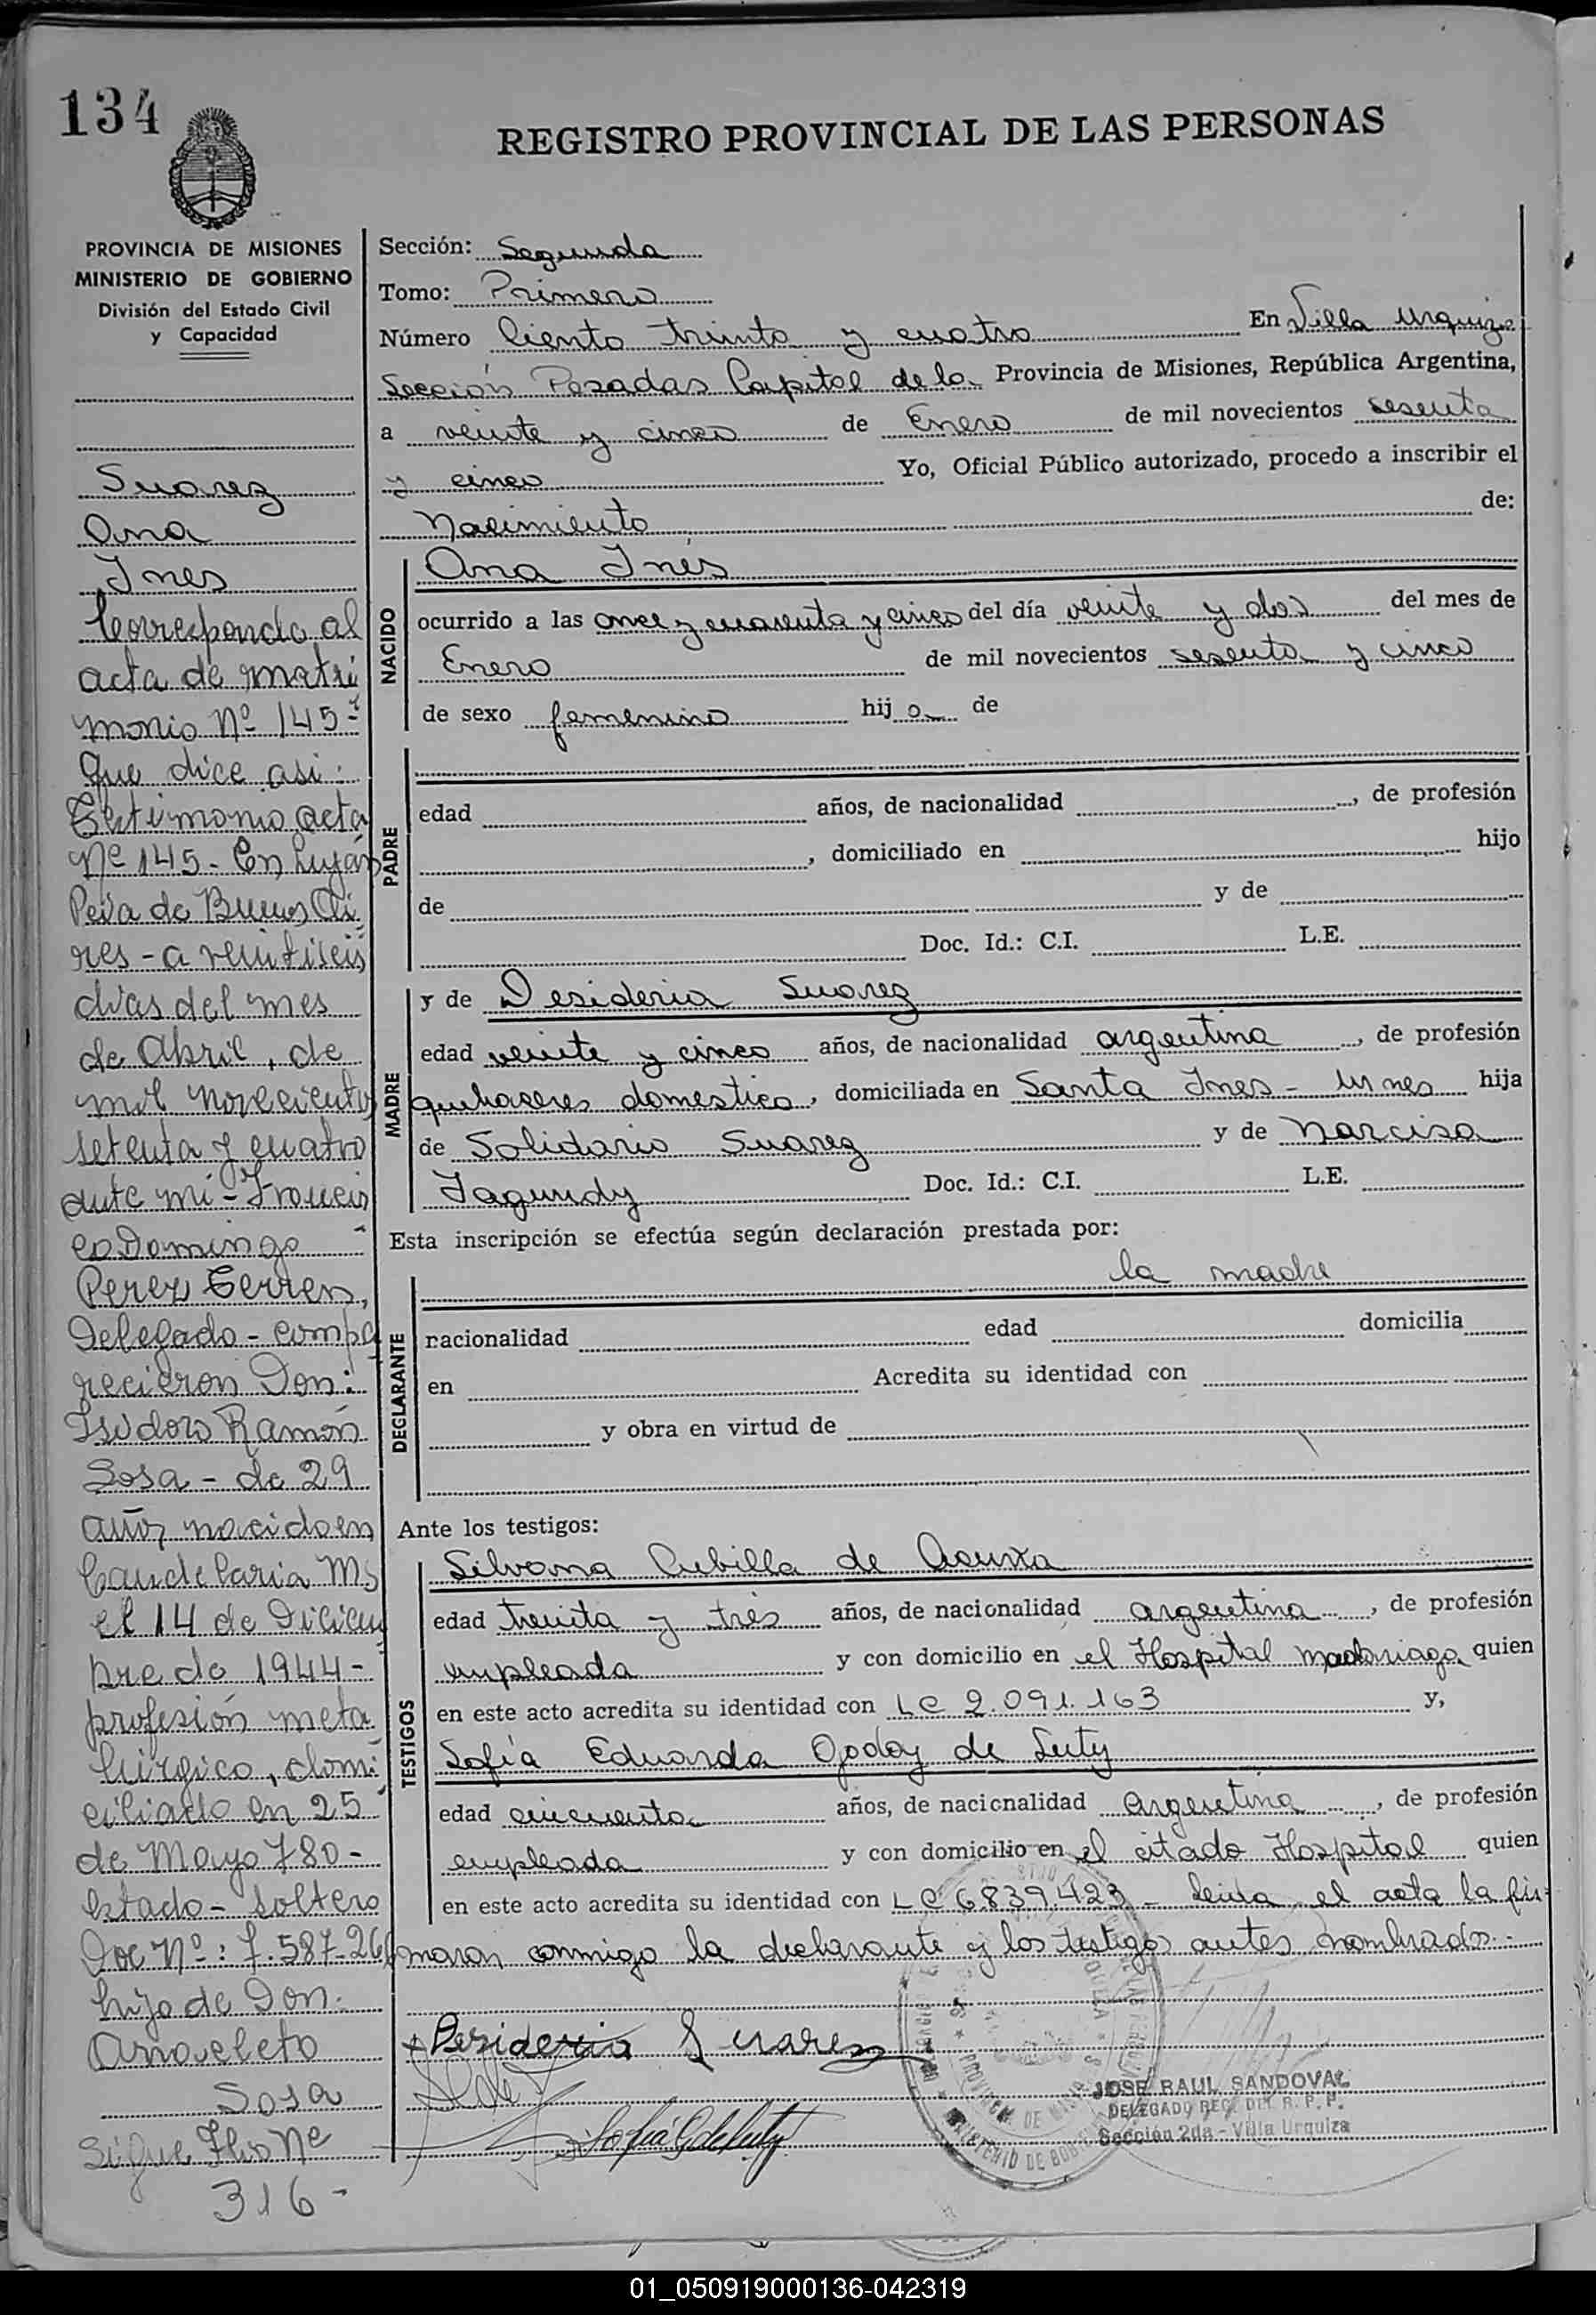 134
REGISTRO PROVINCIAL DE LAS PERSONAS
PROVINCIA DE MISIONES
MINISTERIO DE GOBIERNO
División del Estado Civil
y Capacidad
Suarez
Ana
Ines
Corresponde al
acta de matri
monio Nº 145-
que dice asi:
Testimonio acta
Nº 145- En Luján
Pcia de Buenos Ai
res - a veintiseis
dias del mes
de Abril, de
mil novecientos
setenta y cuatro
ante mi - Francis
co Domingo
Perez Terren,
Delegado - compa
recieron Don:
Isidoro Ramón
Sosa - de 29
años nacido en
Candelaria Ms
el 14 de Diciem
bre de 1944-
profesión meta
lúrgico, domi
ciliado en 25
de Mayo 780-
Estado - Soltero
Doc Nº: 7.587.266
hijo de Don:
Anacleto
Sosa
Sigue Flio Nº
316-
Sección: Segunda
Tomo: Primero
Número Ciento treinta y cuatro En Villa Urquiza
Sección Posadas Capital de la Provincia de Misiones, República Argentina,
a veinte y cinco de Enero de mil novecientos sesenta
y cinco Yo, Oficial Público autorizado, procedo a inscribir el
Nacimiento de:
NACIDO
Ana Inés
ocurrido a las once y cuarenta y cinco del día veinte y dos del mes de
Enero de mil novecientos sesenta y cinco
de sexo femenino hij a de
PADRE
edad años, de nacionalidad , de profesión
, domiciliado en hijo
de y de
Doc. Id.: C.I. L.E.
MADRE
y de Desideria Suarez
edad veinte y cinco años, de nacionalidad argentina , de profesión
quehaceres domestico, domiciliada en Santa Ines - hija
de Solidario Suarez y de Narcisa
Fagundy Doc. Id.: C.I. L.E.
Esta inscripción se efectúa según declaración prestada por:
DECLARANTE
la madre
nacionalidad edad domicilia
en Acredita su identidad con
y obra en virtud de
Ante los testigos:
TESTIGOS
Silvana Cubilla de Acuña
edad treinta y tres años, de nacionalidad argentina , de profesión
empleada y con domicilio en el Hospital Madariaga quien
en este acto acredita su identidad con LC 2.091.163 y,
Sofía Eduarda Godoy de Luty
edad cincuenta años, de nacionalidad argentina , de profesión
empleada y con domicilio en el citado Hospital quien
en este acto acredita su identidad con LC 6.839.423 - Leida el acta la fir-
maron conmigo la declarante y los testigos antes nombrados.-
Desideria Suarez
Sofía G de Luty
JOSE RAUL SANDOVAL
DELEGADO REG. DEL R. P. P.
Sección 2da - Villa Urquiza
01_050919000136-042319